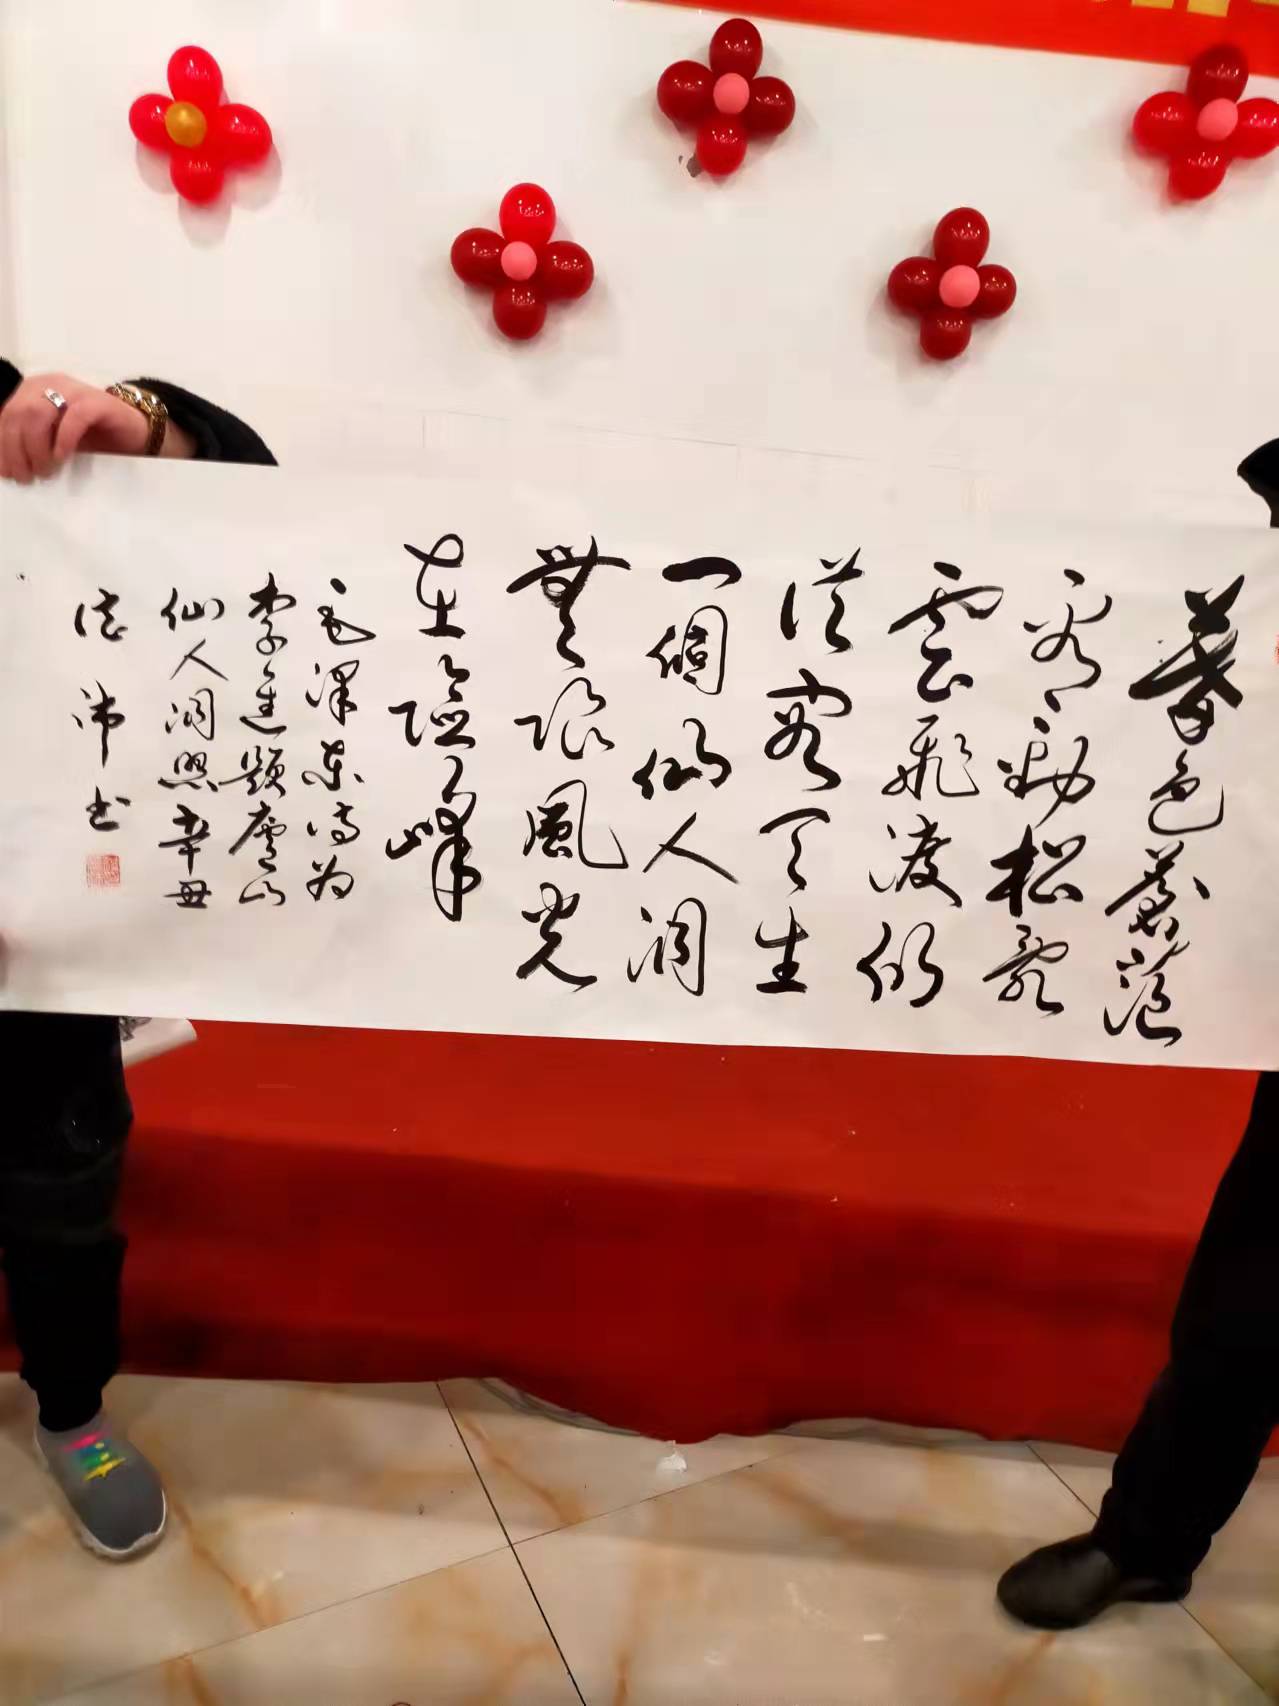 暮色蒼茫
看勁松亂
雲飛渡仍
從容天生
一個仙人洞
無限風光
在險峰
毛澤東诗为
李進題廬山
仙人洞照辛丑
沛书